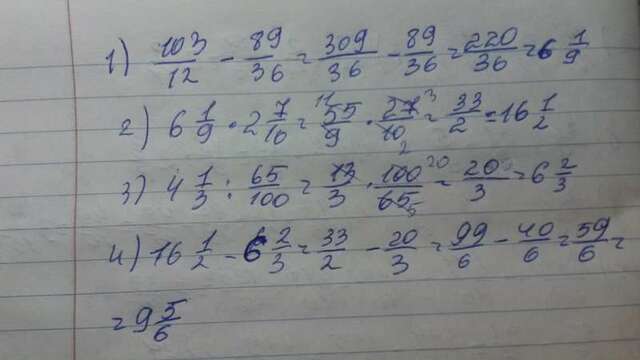 1) 103/12 - 89/36 = 309/36 - 89/36 = 220/36 = 6 1/9
2) 6 1/9 · 2 7/10 = 11 55/9 · 27/10 3 2 = 33/2 = 16 1/2
3) 4 1/3 : 65/100 = 13/3 · 100/65 20 5 = 20/3 = 6 2/3
4) 16 1/2 - 6 2/3 = 33/2 - 20/3 = 99/6 - 40/6 = 59/6 =
= 9 5/6